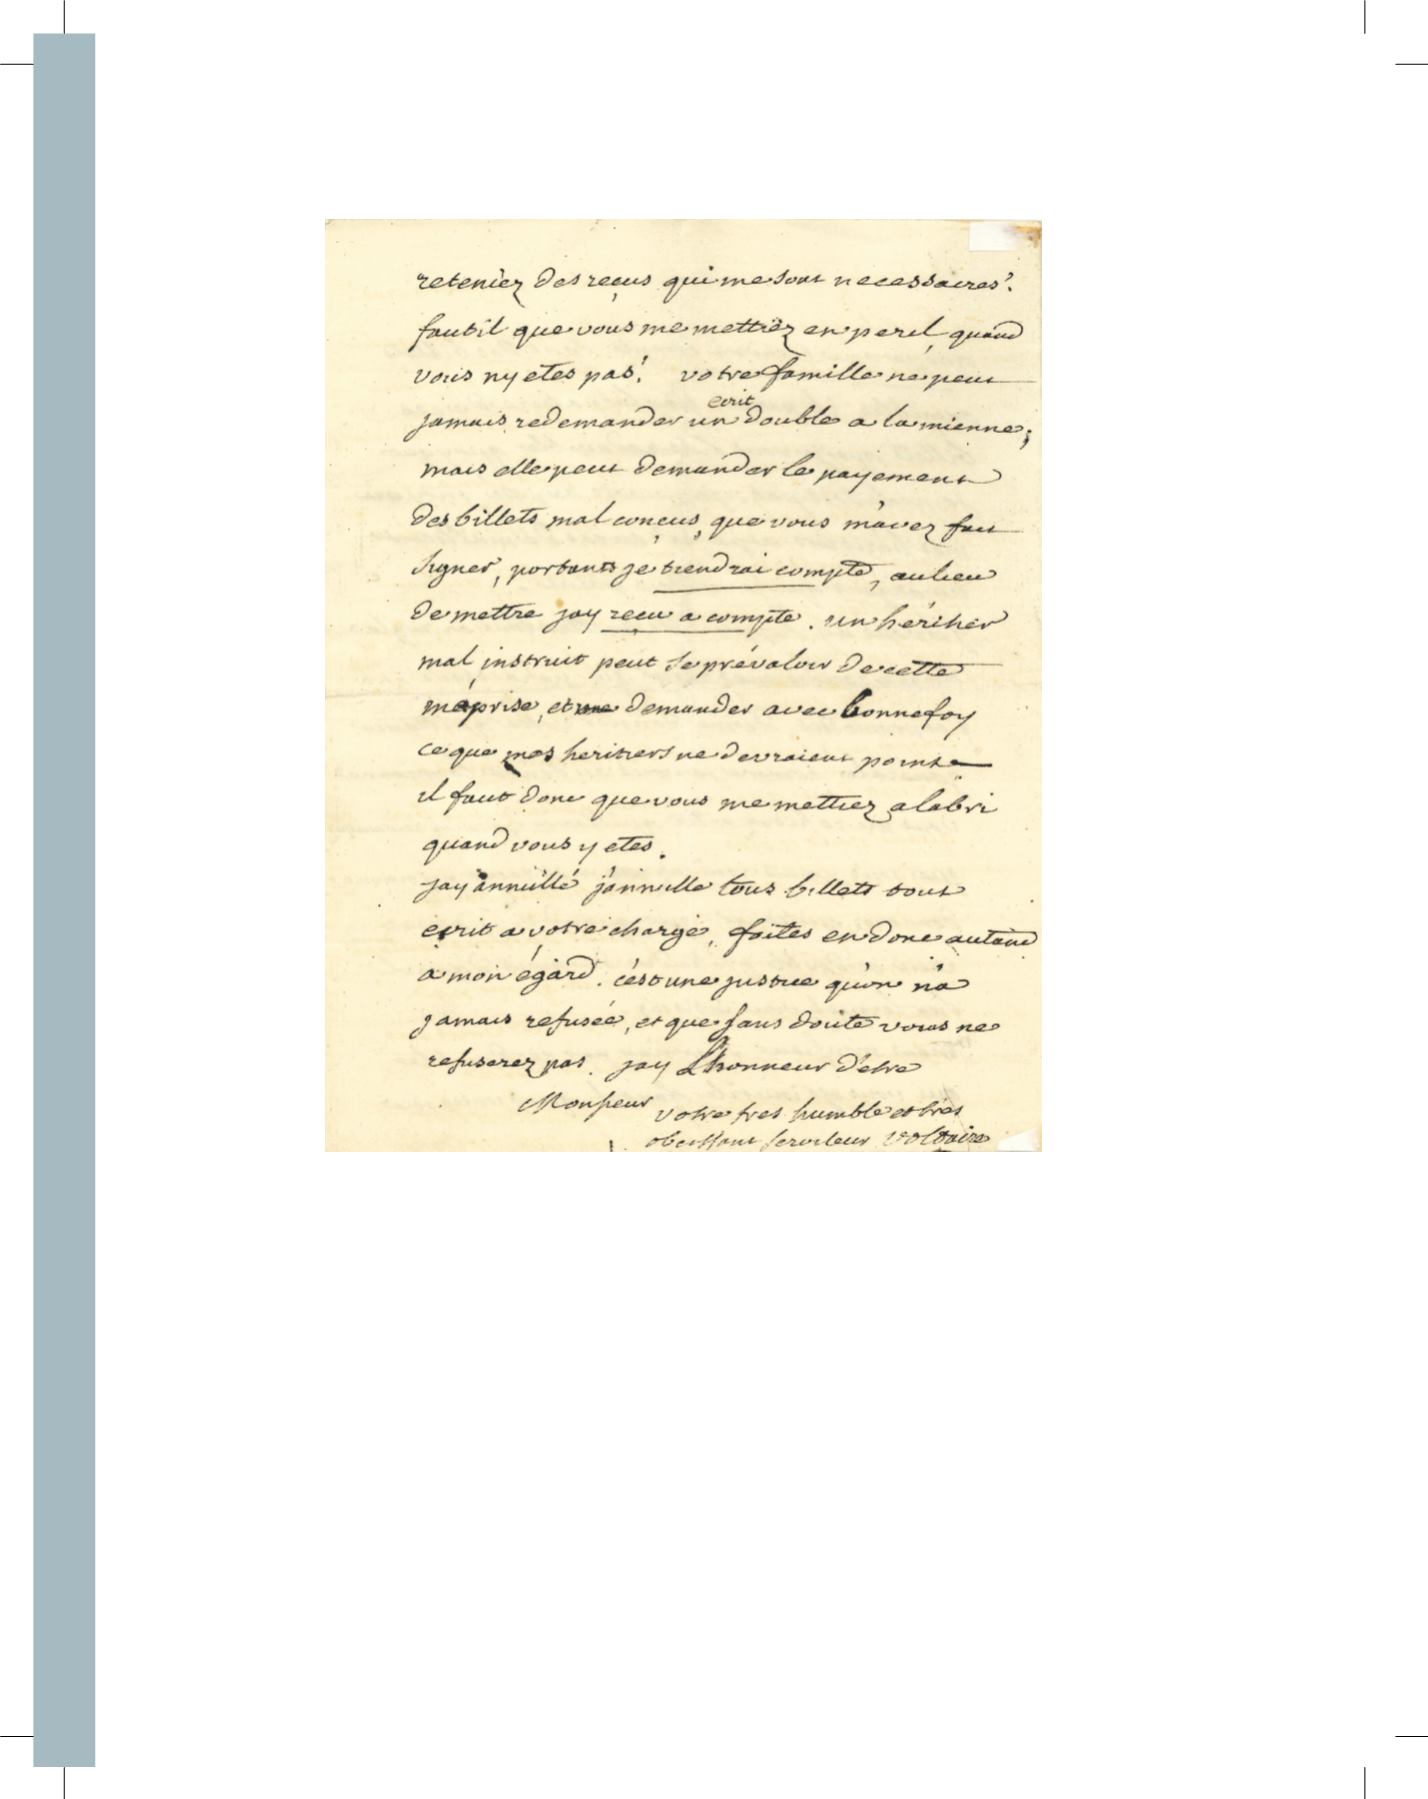 reteniez des reçus qui me sont necessaires?
faut il que vous me mettiez en peril, quand
vous ny etes pas? votre famille ne peut
jamais redemander un ecrit double a la mienne;
mais elle peut demander le payement
des billets mal conçus, que vous m'avez fait
signer, portants je tiendrai compte, au lieu
de mettre jay recu a compte. un hériter
mal instruit peut se prévaloir de cette
méprise, et demander avec bonne foy
ce que mes heritiers ne devraient point
il faut donc que vous me mettiez a labri
quand vous y etes.
jay annullé j'annulle tous billets tout
ecrit a votre charge, faites en donc autand
a mon égard. c'est une justice qu'on n'a
jamais refusée, et que sans doute vous ne
refuserez pas. jay L'honneur d'etre
Monsieur votre tres humble et tres
obeissant serviteur voltaire